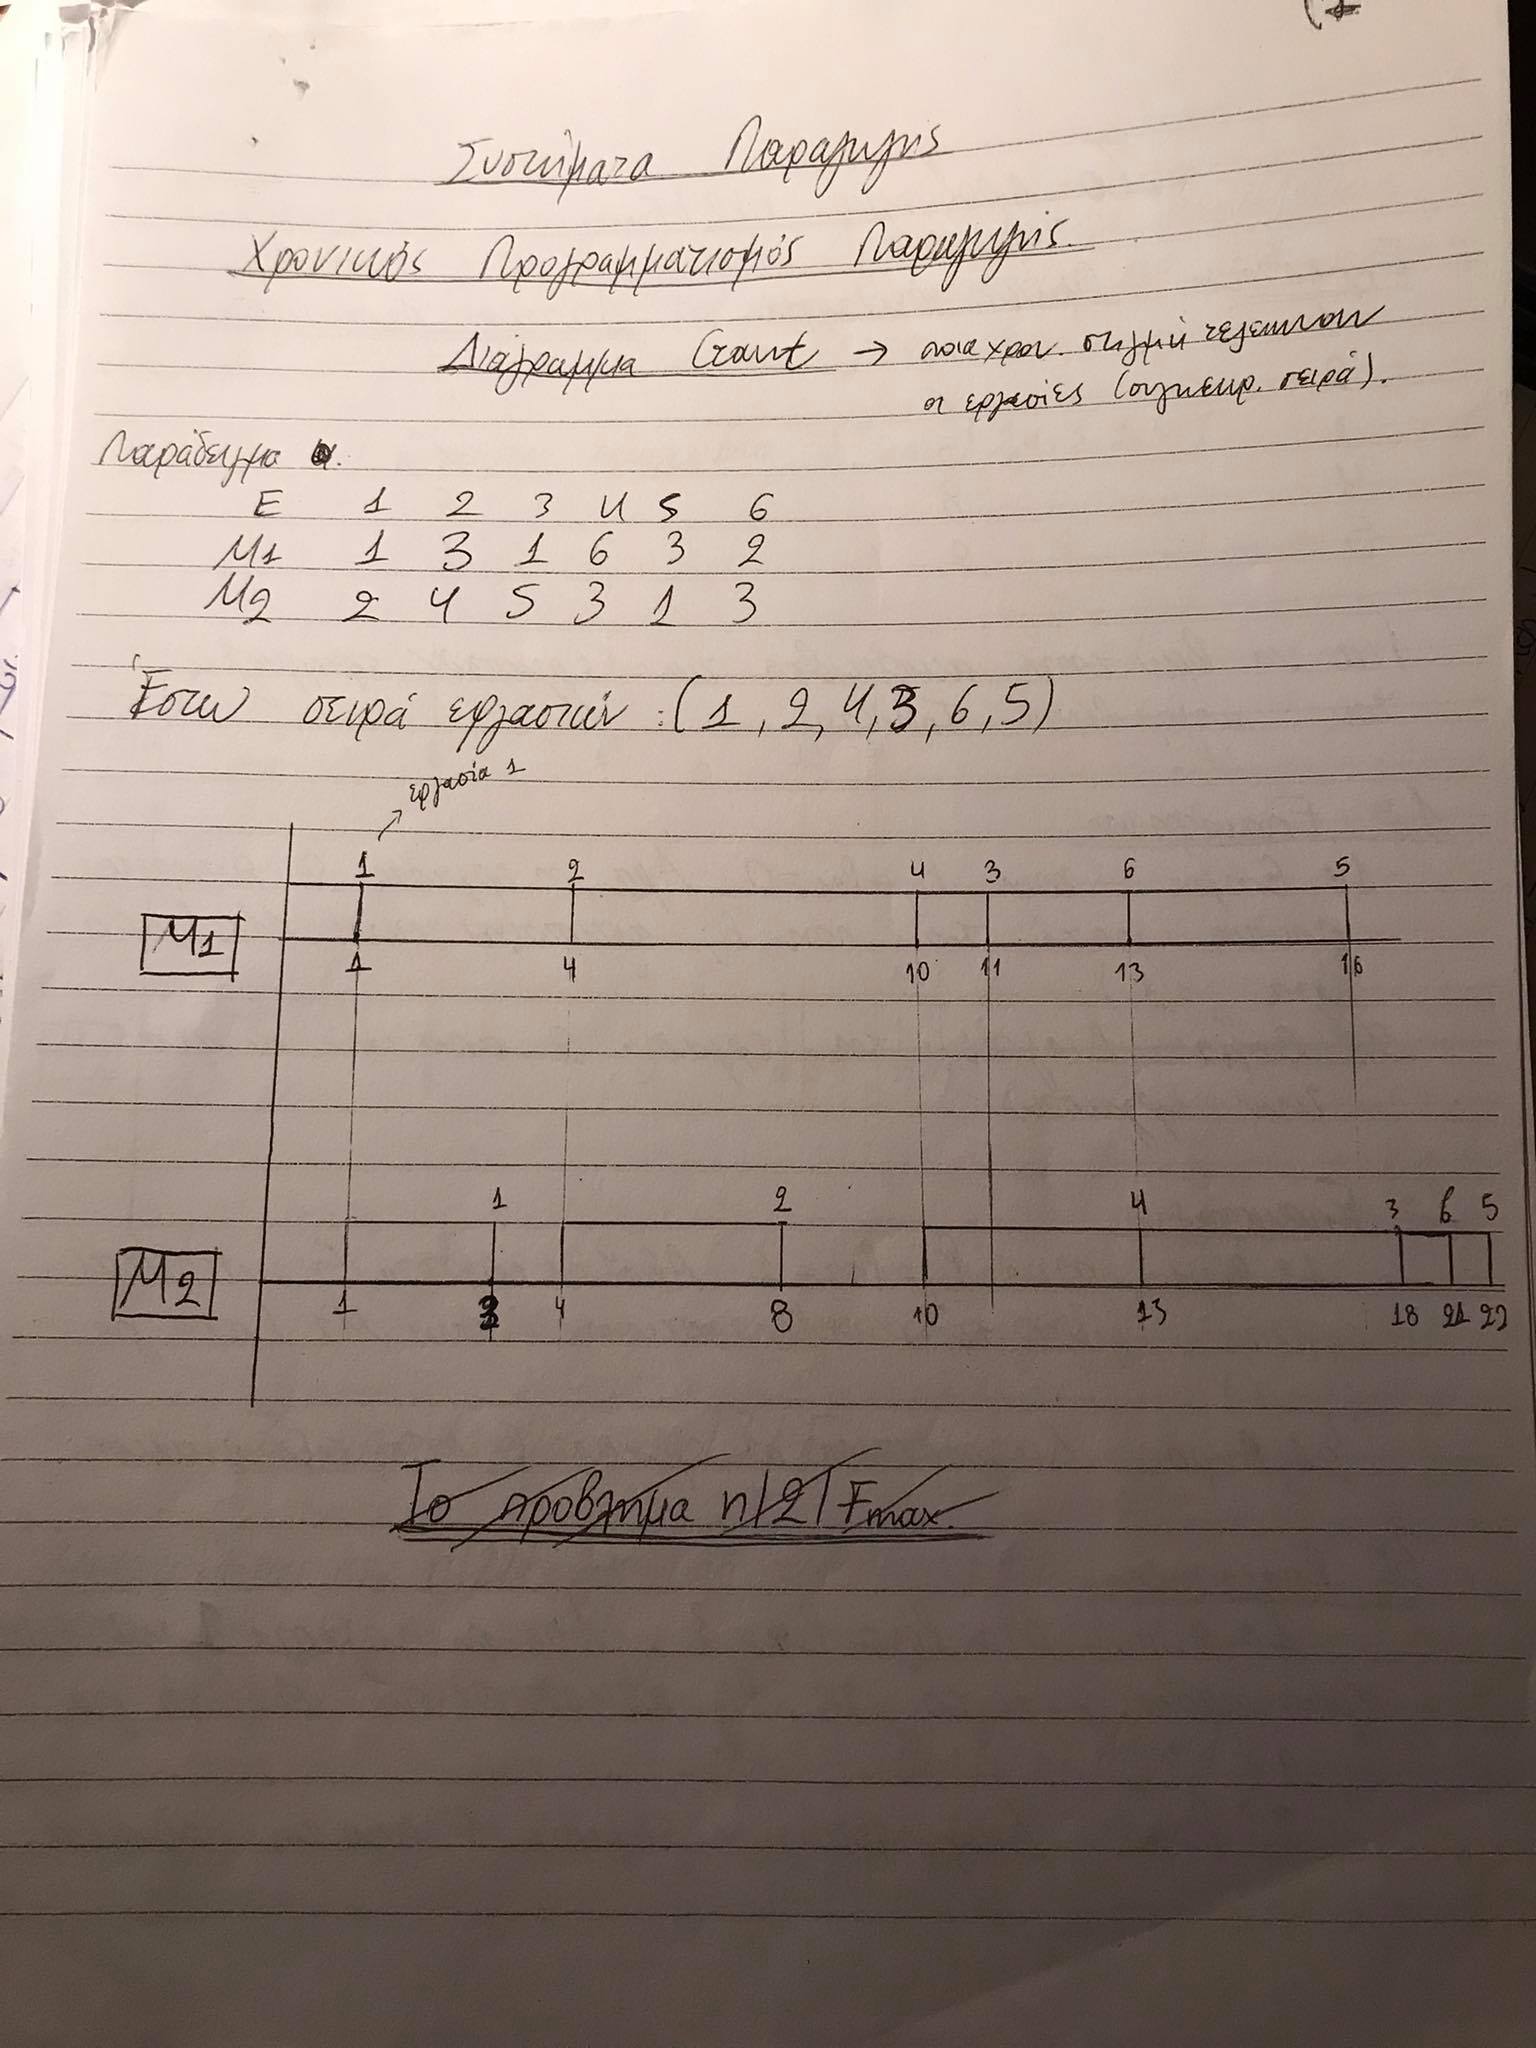 Συστήματα Παραγωγής
Χρονικός Προγραμματισμός Παραγωγής.
Διάγραμμα Gantt → ποια χρον. στιγμή τελειώνουν
οι εργασίες (συγκεκρ. σειρά).
Παράδειγμα
E 1 2 3 4 5 6
M1 1 3 1 6 3 2
M2 2 4 5 3 1 3
Έστω σειρά εργασιών : (1, 2, 4, 3, 6, 5)
εργασία 1
1 2 4 3 6 5
M1
1 4 10 11 13 16
1 2 4 3 6 5
M2
1 3 4 8 10 13 18 21 22
Το πρόβλημα n|2|Fmax.